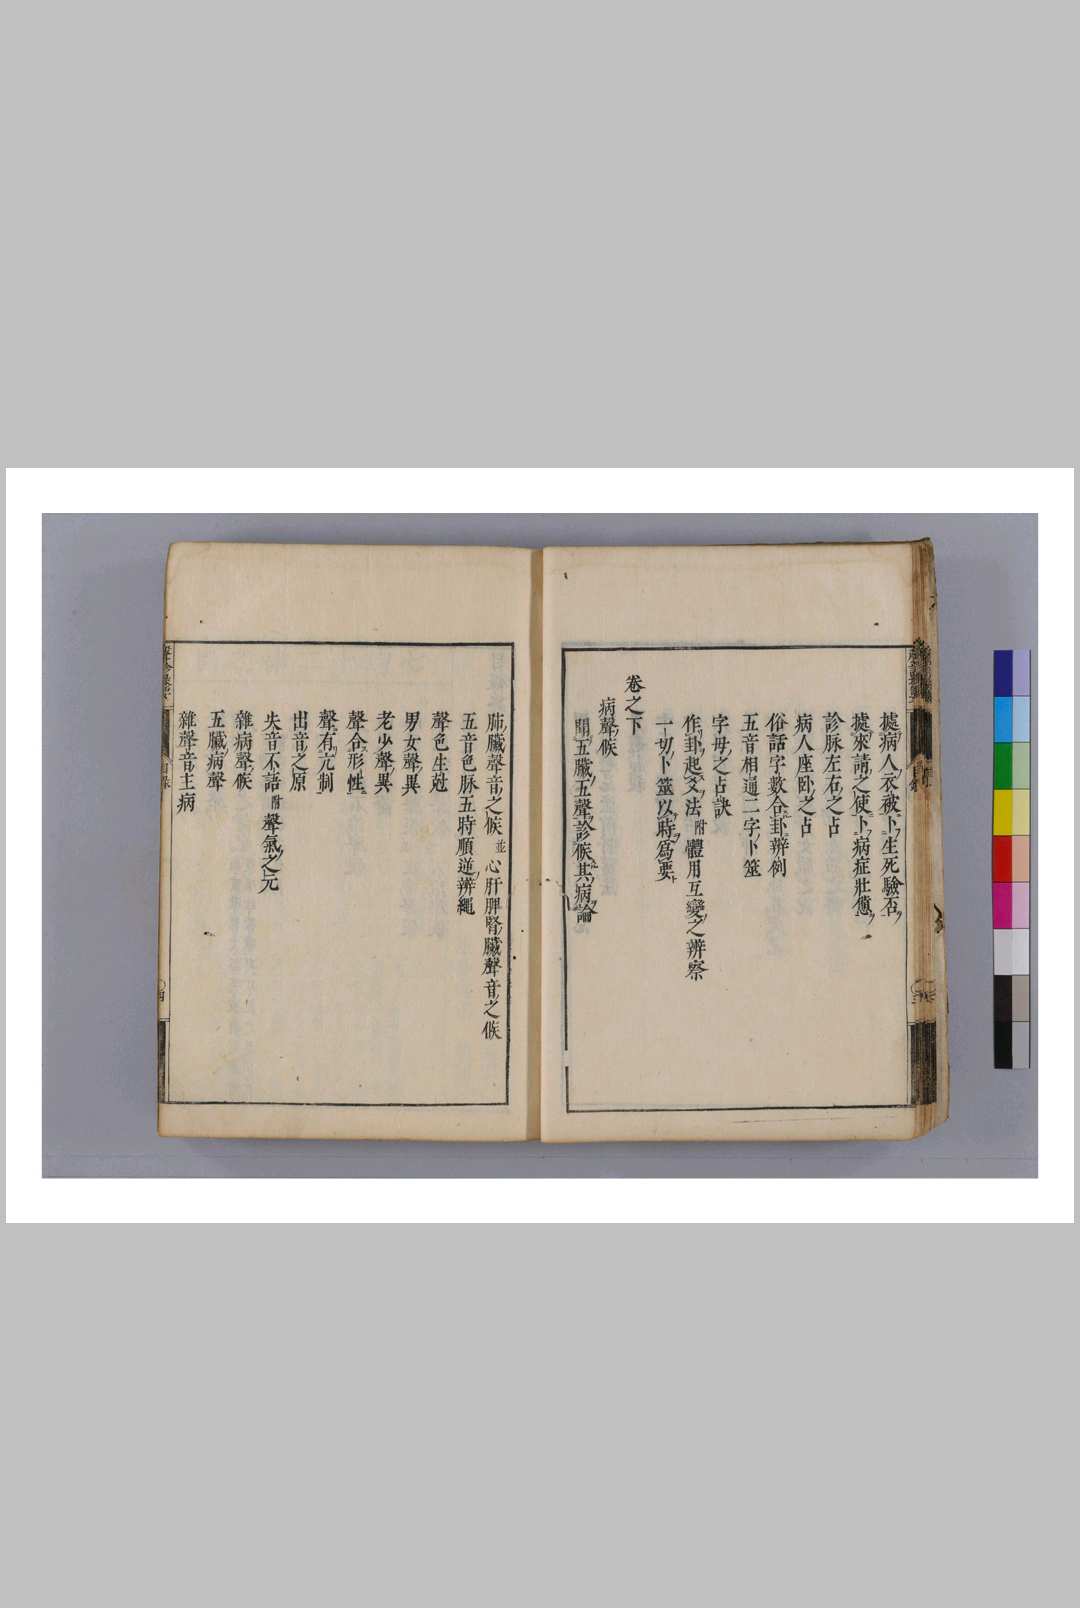 據病人衣被卜生死驗否
據來請之使卜病症壯憊
診脉左右之占
病人座卧之占
俗話字數合卦辨例
五音相通二字卜筮
字母之占訣
作卦起爻法附體用互變之辨察
一切卜筮以時爲要
卷之下
病聲候
聞五臟五聲診候其病論
肺臟聲音之候並心肝脾腎臟聲音之候
五音色脉五時順逆辨繩
聲色生尅
男女聲異
老少聲異
聲合形性
聲有亢制
出音之原
失音不語附聲氣之元
雜病聲候
五臟病聲
雜聲音主病